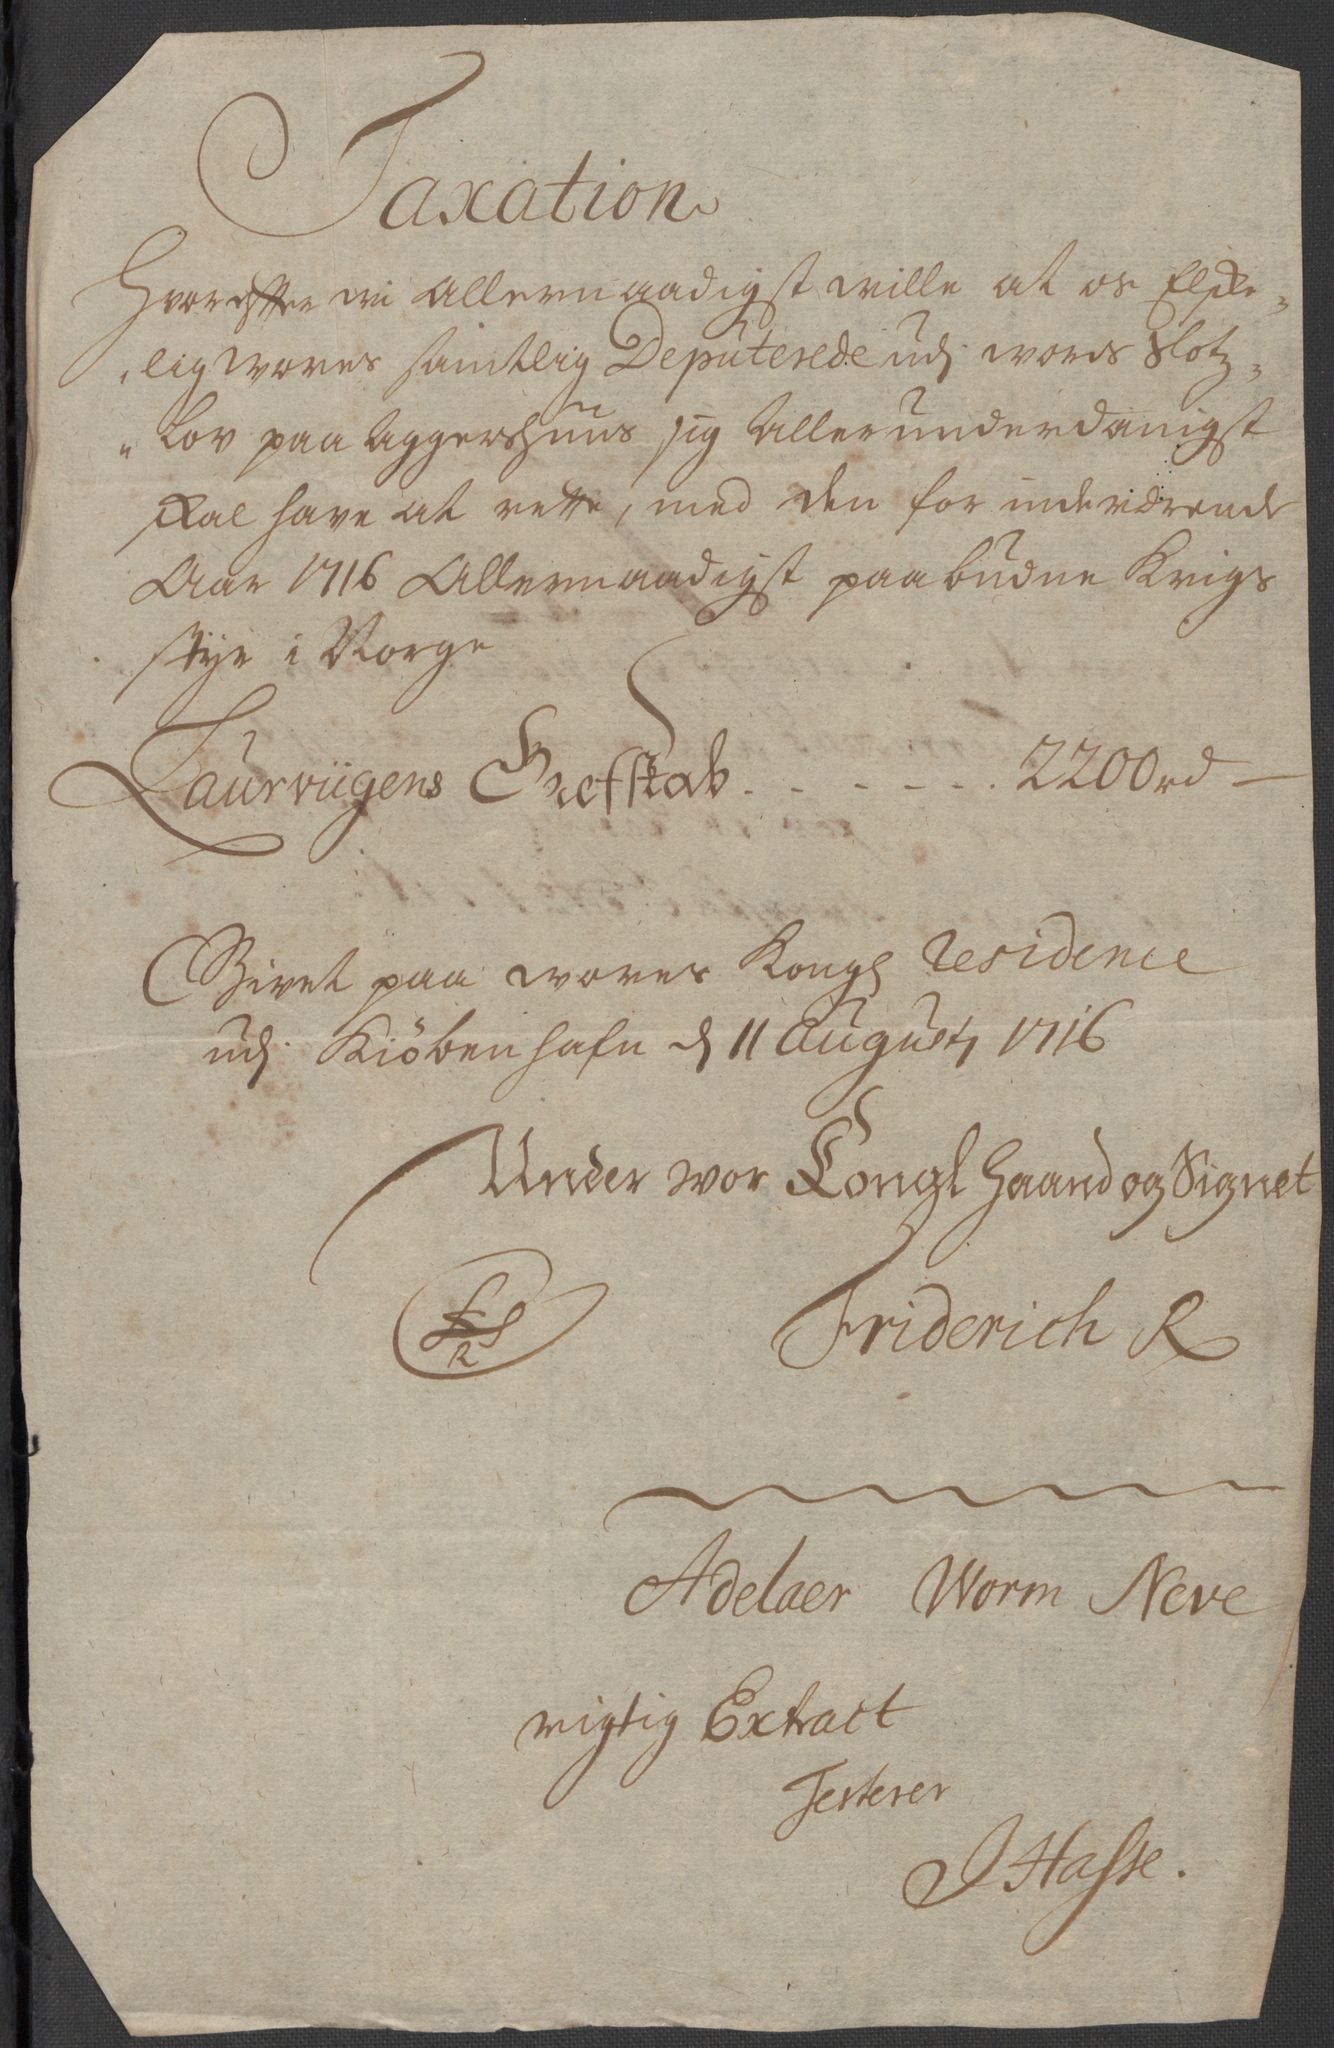 Taxation
Hvorefter wi allernaadigst wille at os Elske-
„lig wores samtlig Deputerede udj wores Slotz-
„Lov paa Aggershuus sig allerunderdanigst
skal have at rette, med den for indeværende
Aar 1716 Allernaadigst paabudne Krigs
styr i Norge
Laurviigens Grefskab . . . . . . . 2200 rd —
Givet paa wores Kongl residence
udj Kiöbenhafn d 11 Augustj 1716
Under wor Kongl Haand og Signet
LS
R
Friderich R
Adelaer Worm Neve
rigtig Extract
Testerer
J Hasse.